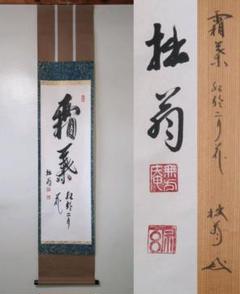 霜葉
紅於二月
花
拙翁
拙翁
霜葉 紅於二月花 拙翁